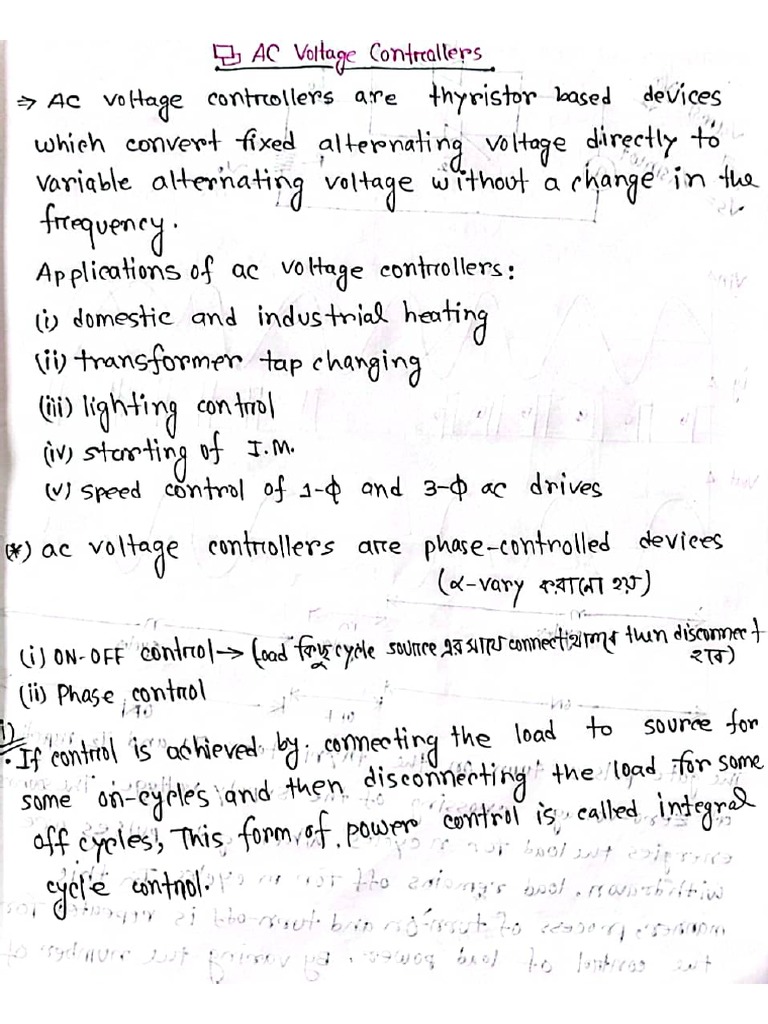 AC Voltage Controllers
⇒ AC voltage controllers are thyristor based devices
which convert fixed alternating voltage directly to
variable alternating voltage without a change in the
frequency.
Applications of ac voltage controllers:
(i) domestic and industrial heating
(ii) transformer tap changing
(iii) lighting control
(iv) starting of I.M.
(v) speed control of 1-ф and 3-ф ac drives
(*) ac voltage controllers are phase-controlled devices
(α-vary করানো হয়)
(i) ON-OFF control → (Load কিছু cycle source এর সাথে connect থাকবে then disconnect
হবে)
(ii) Phase control
i)
• If control is achieved by connecting the load to source for
some on-cycles and then disconnecting the load for some
off cycles, This form of power control is called integral
cycle control.